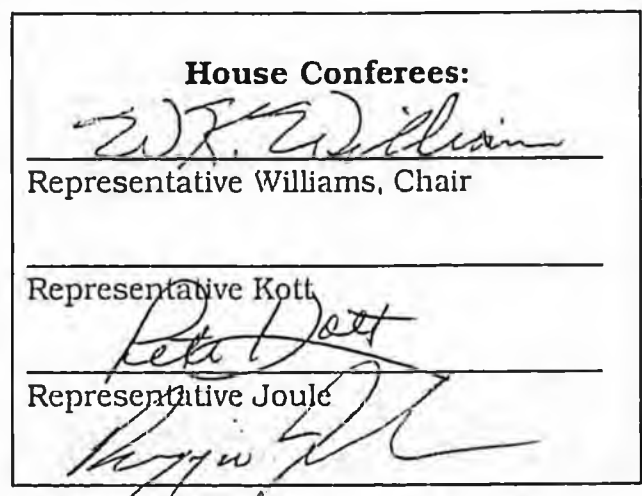 House Conferees:
W.K. William
Representative Williams, Chair
Representative Kott
Pete Kott
Representative Joule
Reggie Joule